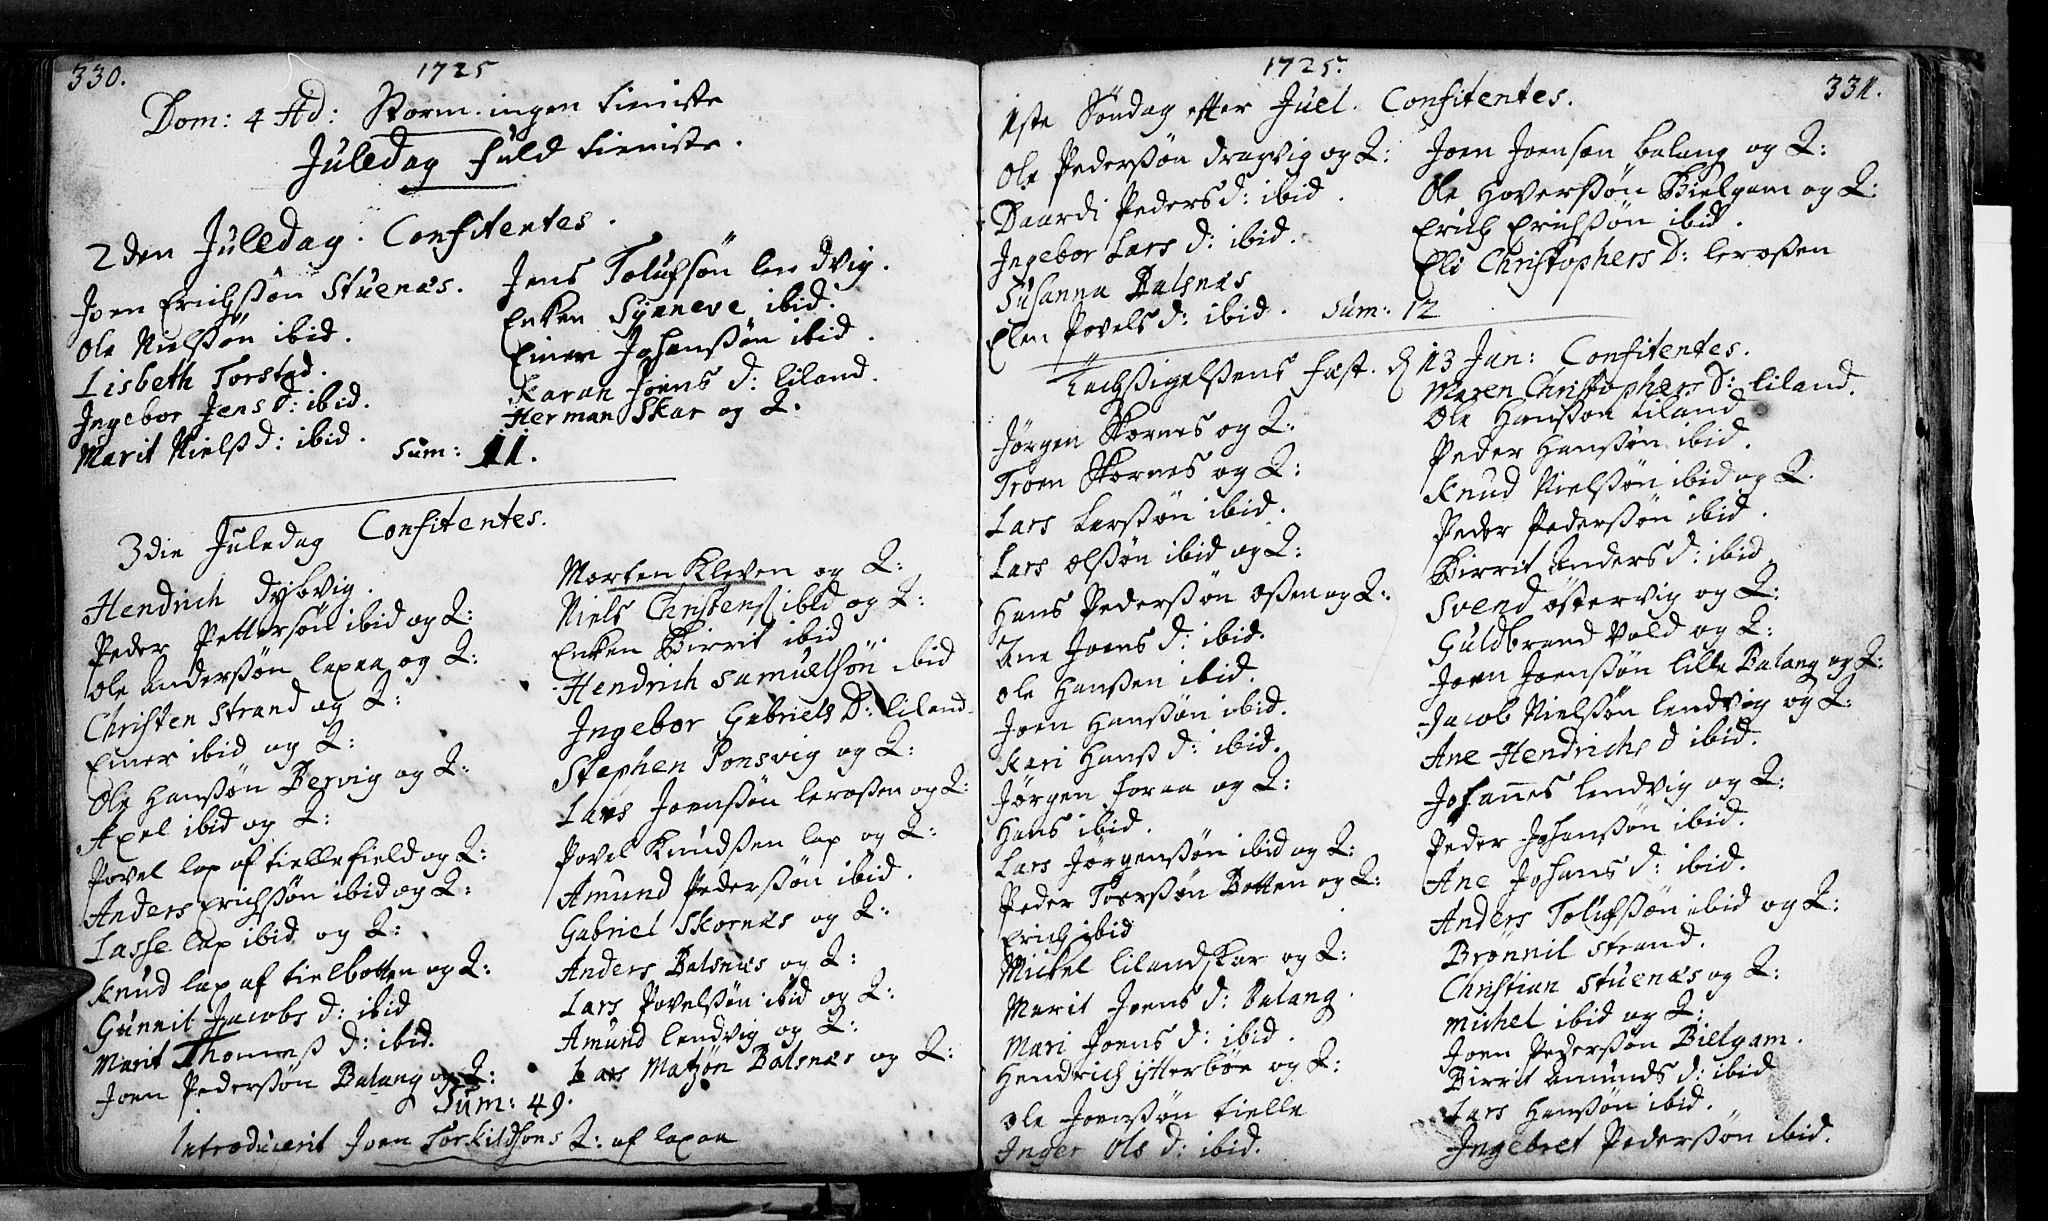 330.
1725
Dom: 4 Ad: Storm. ingen tieniste
Juledag fuld tieniste.
2den Juledag. Confitentes.
Joen Erichssøn Stuenæs.
Ole Nielssøn ibid.
Lisbeth Torsted.
Ingebor Jens d: ibid.
Marit Nielss d: ibid.
Jens Tolufsøn lendvig.
Enken Synneve ibid.
Einer Johanssøn ibid.
Karan Joens d: liland.
Herman Skar og Q.
Sum: 11.
3die Juledag Confitentes.
Hendrich dybvig.
Peder Pettersøn ibid og Q:
Ole Anderssøn lapaa og Q:
Christen Strand og Q:
Einer ibid og Q:
Ole Hanssøn Bervig og Q:
Axel ibid og Q:
Povel lap af tiellefield og Q:
Anders Erichssøn ibid og Q:
Lasse lap ibid og Q:
Knud lap af tielbotten og Q:
Gunnil Jacobs d: ibid
Marit Thomess d: ibid.
Joen Pederssøn Balang og Q:
Morten Kleven og Q:
Niels Christens ibid og Q:
Enken Birrit ibid
Hendrich Samuelsøn ibid
Ingebor Gabriels D: liland.
Stephen Ponsvig og Q:
Lars Joenssøn lerossen og Q:
Povel Knudssen lap og Q:
Amund Pederssøn ibid.
Gabriel Skornæs og Q:
Anders Balsnæs og Q:
Lars Povelssøn ibid og Q:
Amund lendvig og Q:
Lars Matsøn Balsnæs og Q:
Sum: 49.
Introducerit Joen Torkildsøns Q: af lapaa
1725.
331.
1ste Søndag efter Juel. Confitentes.
Ole Pederssøn dragvig og Q:
Daardi Peders d: ibid.
Ingebor Lars d: ibid.
Susanna Balsnæs
Elen Povels d: ibid.
Joen Joenson balang og Q:
Ole Hoverssøn Bielgam og Q:
Erich Erichssøn ibid.
Eli Christophers D: lerossen
Sum: 12
Kachssigelssens fæst. d 13 Jan: Confitentes.
Jørgen Skornes og Q:
Troen Skornes og Q:
Lars Larssøn ibid.
Lars Olssøn ibid og Q:
Hans Pederssøn ossen og Q:
Ane Joens d: ibid.
Ole Hanssen ibid.
Joen Hanssøn ibid.
Kari Hanss d: ibid.
Jørgen foraa og Q:
Hans ibid.
Lars Jørgenssøn ibid og Q:
Peder Toerssøn Botten og Q:
Erich ibid
Michel lilandskar og Q:
Marit Joens d: Balang.
Mari Joens d: ibid.
Hendrich ytterbøe og Q:
Ole Joenssøn tielle
Inger Ols d: ibid.
Maren Christophers D: liland.
Ole Hanssøn liland
Peder Hanssøn ibid.
Knud Nielssøn ibid og Q.
Peder Pederssøn ibid.
Birrit Anders d: ibid
Svend østervig og Q:
Guldbrand Vold og Q:
Joen Joenssøn lille Balang og Q:
Jacob Nielssøn lendvig og Q:
Ane Hendrichs d ibid.
Johannes lendvig og Q:
Peder Johanssøn ibid.
Ane Johans d: ibid.
Anders Tolufssøn ibid og Q:
Brønnil Strand.
Christian Stuenæs og Q:
Michel ibid og Q:
Joen Pederssøn Bielgam.
Birrit Amunds d: ibid
Lars Hanssøn ibid.
Ingebret Pederssøn ibid.